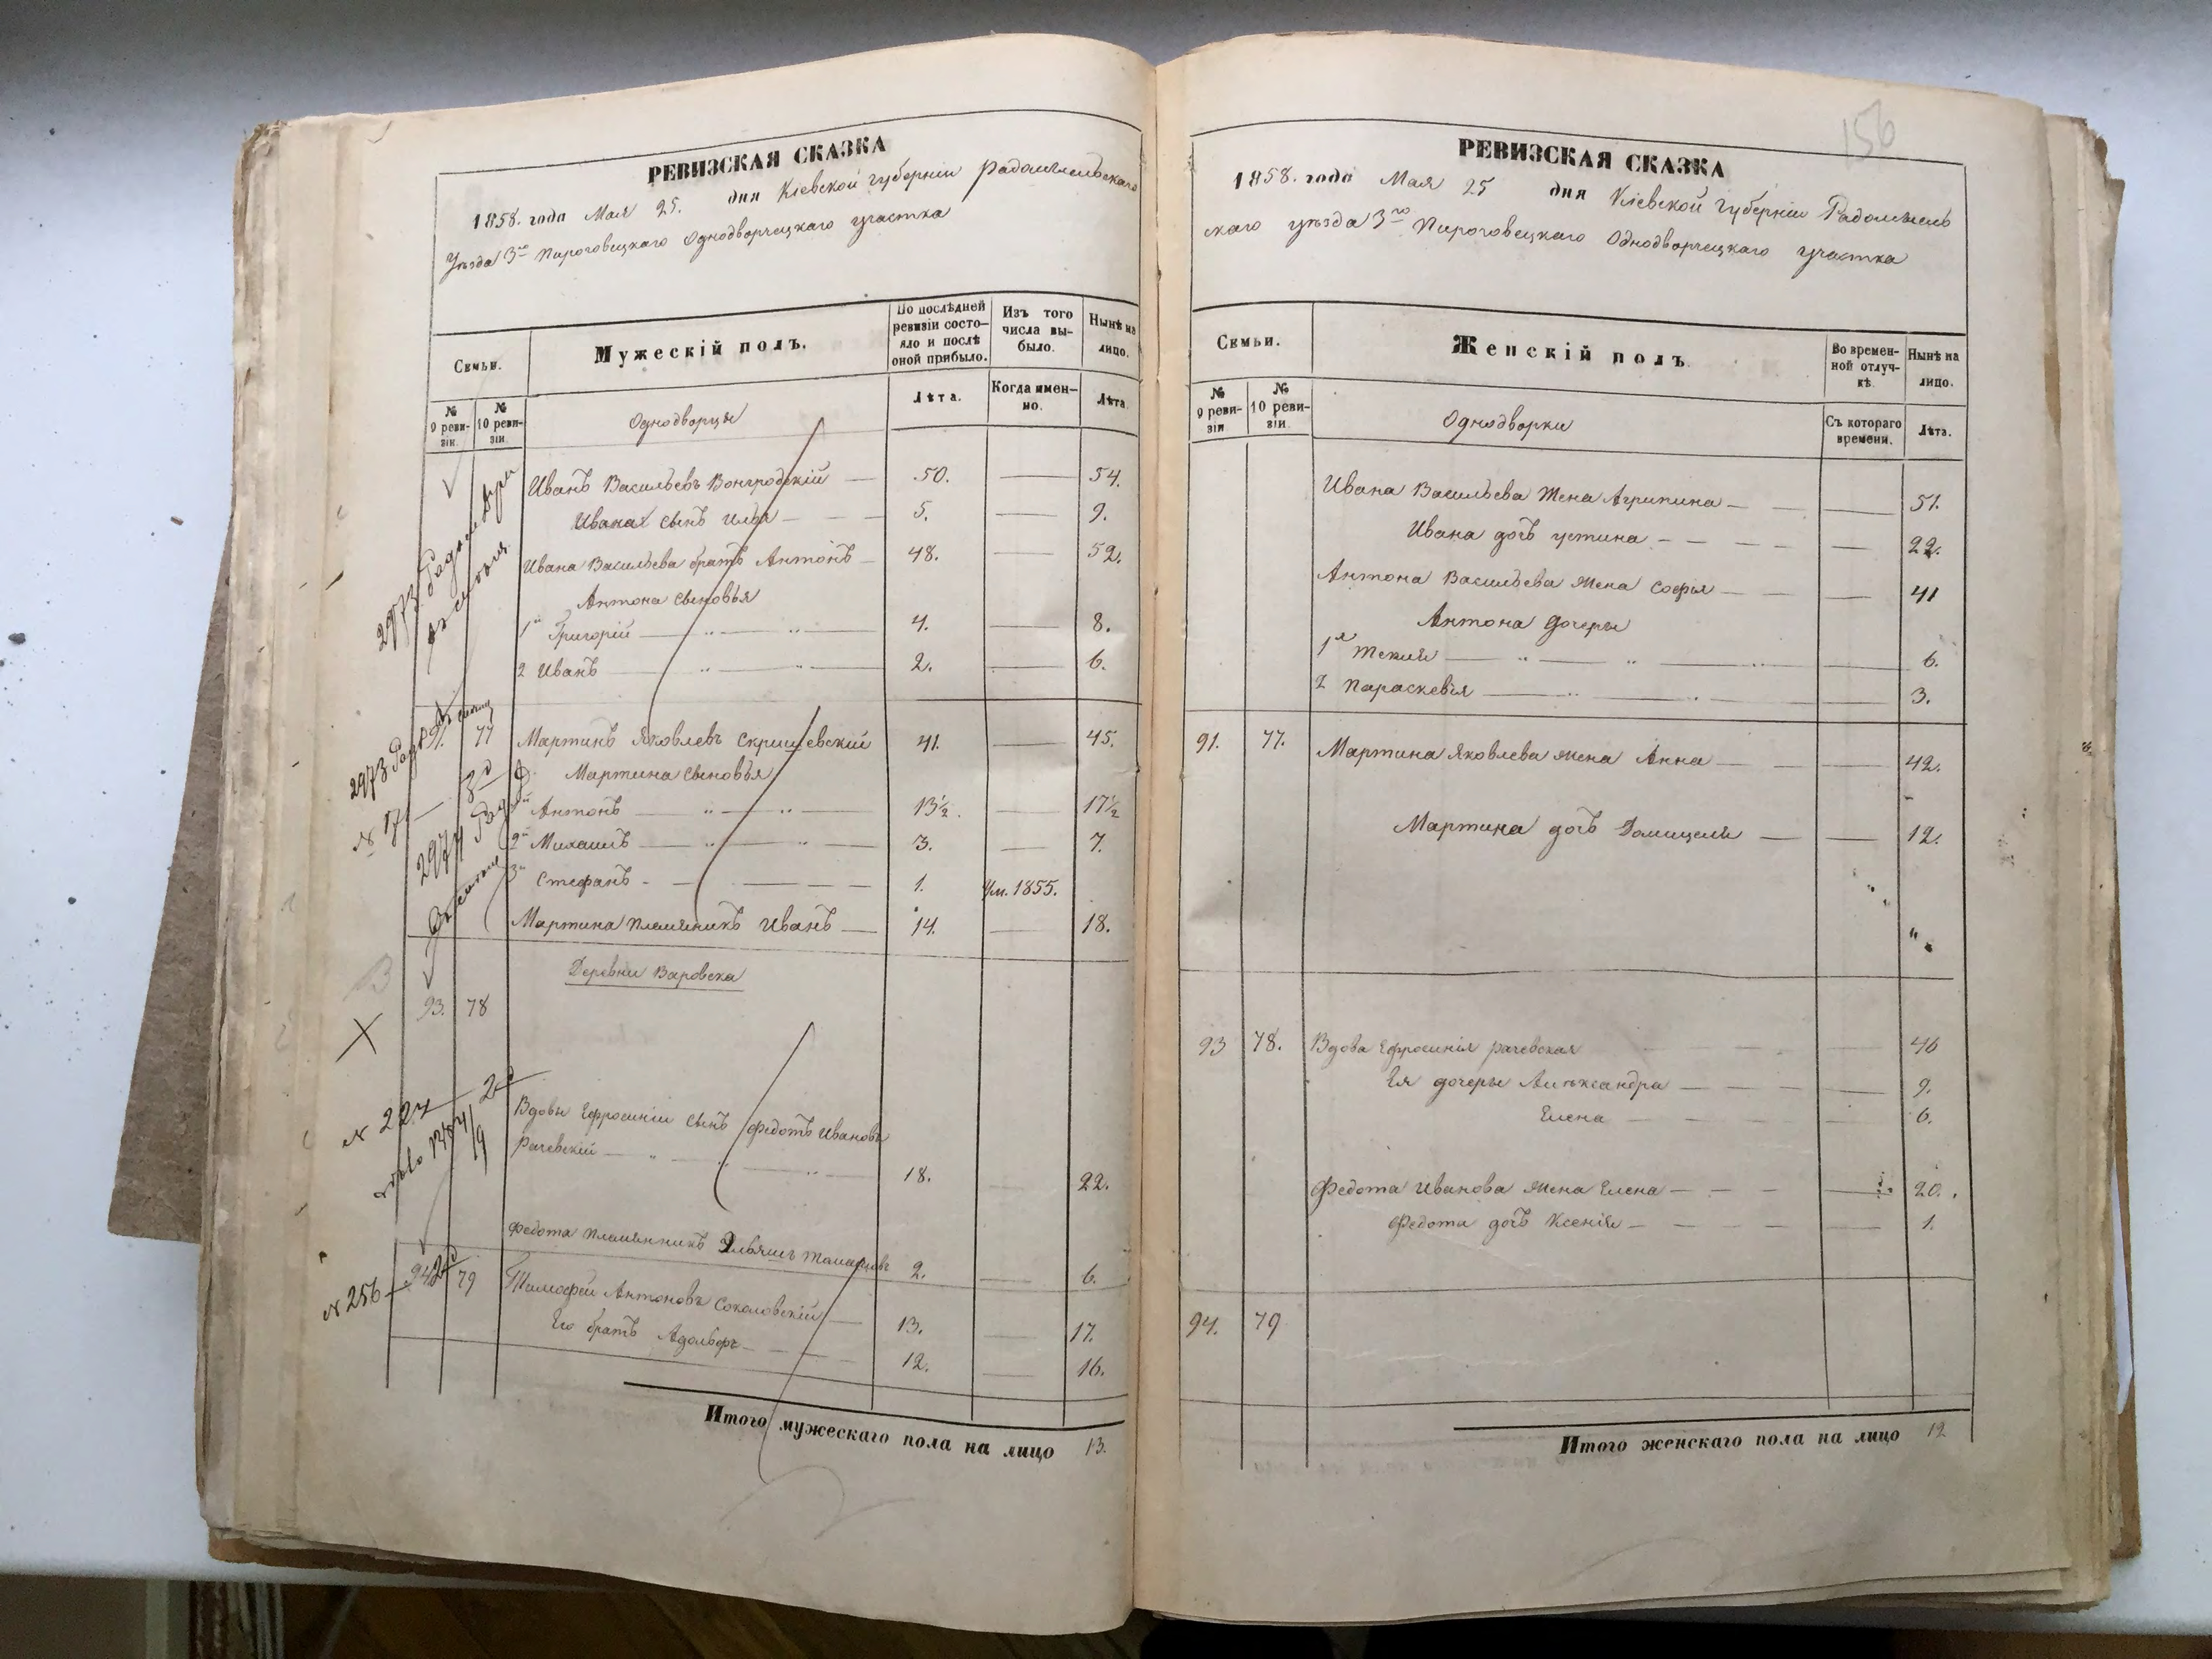 РЕВИЗСКАЯ СКАЗКА
1858. года Мая 25. дня Кіевской губерніи Радомысльскаго
Уѣзда 3го Пироговецкаго Однодворческаго участка
Семьи.
Мужескій полъ.
По послѣдней ревизіи состо-
яло и послѣ оной прибыло.
Изъ того числа вы-
было.
Нынѣ на лицо.
№ 9 реви-
зіи.
№ 10 реви-
зіи.
Однодворцы
Лѣта.
Когда имен-
но.
Лѣта.
Иванъ Васильевъ 50. 54.
Ивана сынъ Илья 5. 9.
Ивана Васильева братъ Антонъ 48. 52.
Антона сыновья
1й Григорій 4. 8.
2 Иванъ 2. 6.
91. 77 Мартинъ Яковлевъ Скришевскій 41. 45.
Мартина сыновья
Антонъ 13½. 17½
2й Михаилъ 3. 7.
3й Стефанъ 1. Ум. 1855.
Мартина племянникъ Иванъ 14. 18.
Деревни Варовска
93. 78
Вдовы Ефросиніи сынъ Федотъ Ивановъ
Рачевскій 18. 22.
Федота племянникъ 2. 6.
94 79 Тимофей Антоновъ Соколовскій 13. 17.
Его братъ Адольфъ 12. 16.
Итого мужескаго пола на лицо 13.
2973
2973
2974
№ 224
№ 256
156
РЕВИЗСКАЯ СКАЗКА
1858. года Мая 25 дня Кіевской губерніи Радомысль
скаго уѣзда 3го Пироговецкаго Однодворческаго участка
Семьи.
Женскій полъ.
Во времен-
ной отлуч-
кѣ.
Нынѣ на лицо.
№ 9 реви-
зіи
№ 10 реви-
зіи.
Однодворки
Съ котораго времени.
Лѣта.
Ивана Васильева жена Агрипина 51.
Ивана дочь Устина 22.
Антона Васильева жена Софія 41
Антона дочери
1я Текля 6.
2 Параскевія 3.
91. 77. Мартина Яковлева жена Анна 42.
Мартина дочь Домицеля 12.
93 78. Вдова Ефросинія Рачевская 46
Ея дочери Александра 9.
Елена 6.
Федота Иванова жена Елена 20.
Федота дочь Ксенія 1.
94. 79
Итого женскаго пола на лицо 12